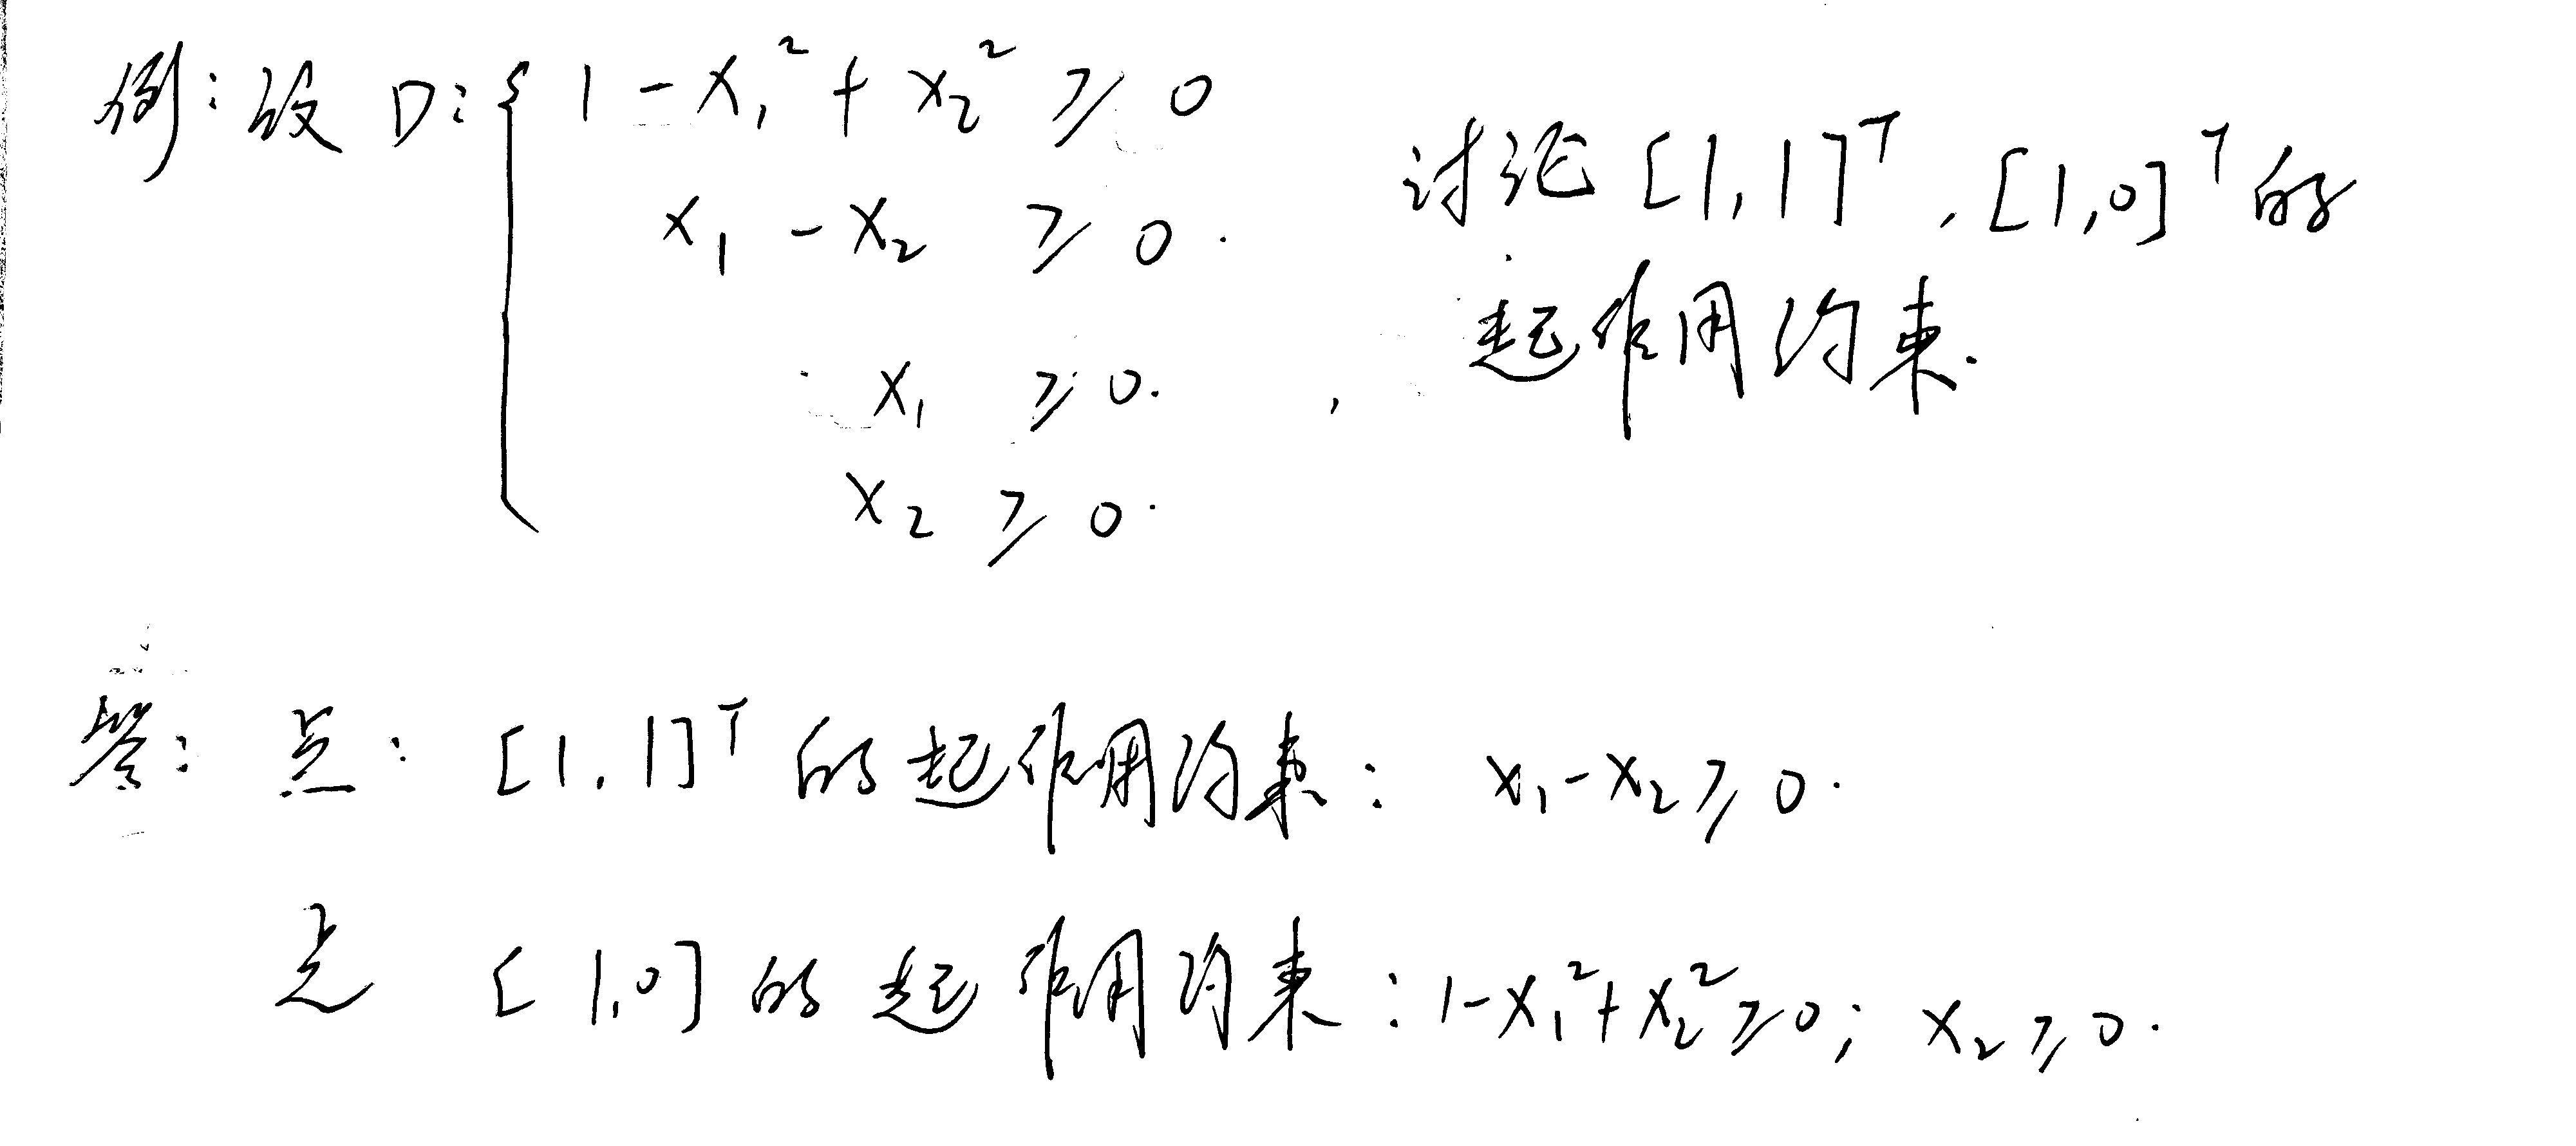 例：设 D：{ 1 - x₁² + x₂² ≥ 0
x₁ - x₂ ≥ 0.
x₁ ≥ 0.
x₂ ≥ 0.
， 讨论 [1, 1]ᵀ, [1, 0]ᵀ 的
起作用约束.
答：点：[1, 1]ᵀ 的起作用约束：x₁ - x₂ ≥ 0.
点 [1, 0] 的起作用约束：1 - x₁² + x₂² ≥ 0; x₂ ≥ 0.